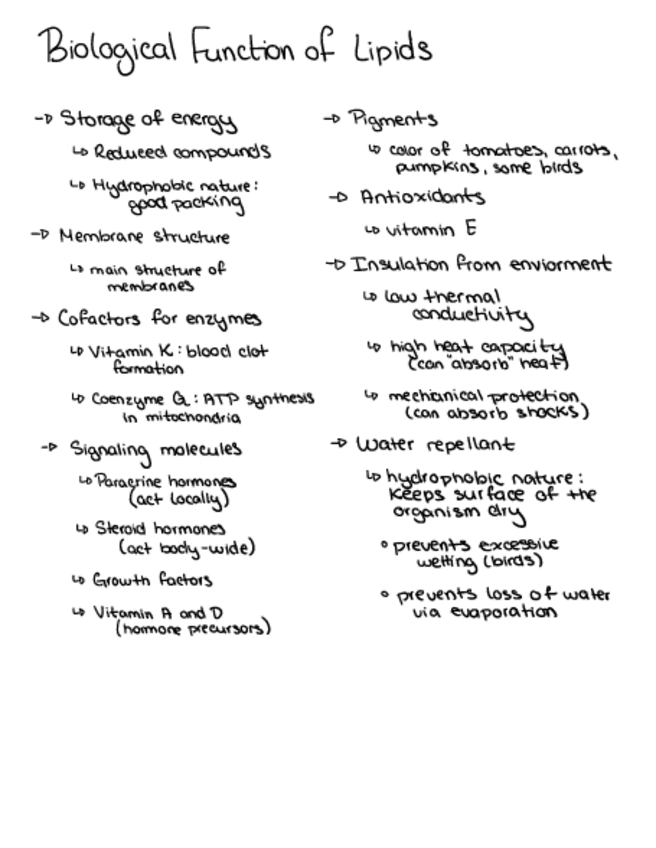 Biological Function of Lipids
→ Storage of energy
↳ Reduced compounds
↳ Hydrophobic nature:
good packing
→ Membrane structure
↳ main structure of
membranes
→ Cofactors for enzymes
↳ Vitamin K: blood clot
formation
↳ Coenzyme Q: ATP synthesis
in mitochondria
→ Signaling molecules
↳ Paracrine hormones
(act locally)
↳ Steroid hormones
(act body-wide)
↳ Growth factors
↳ Vitamin A and D
(hormone precursors)
→ Pigments
↳ color of tomatoes, carrots,
pumpkins, some birds
→ Antioxidants
↳ vitamin E
→ Insulation from enviorment
↳ low thermal
conductivity
↳ high heat capacity
(can "absorb" heat)
↳ mechanical protection
(can absorb shocks)
→ Water repellant
↳ hydrophobic nature:
keeps surface of the
organism dry
• prevents excessive
wetting (birds)
• prevents loss of water
via evaporation